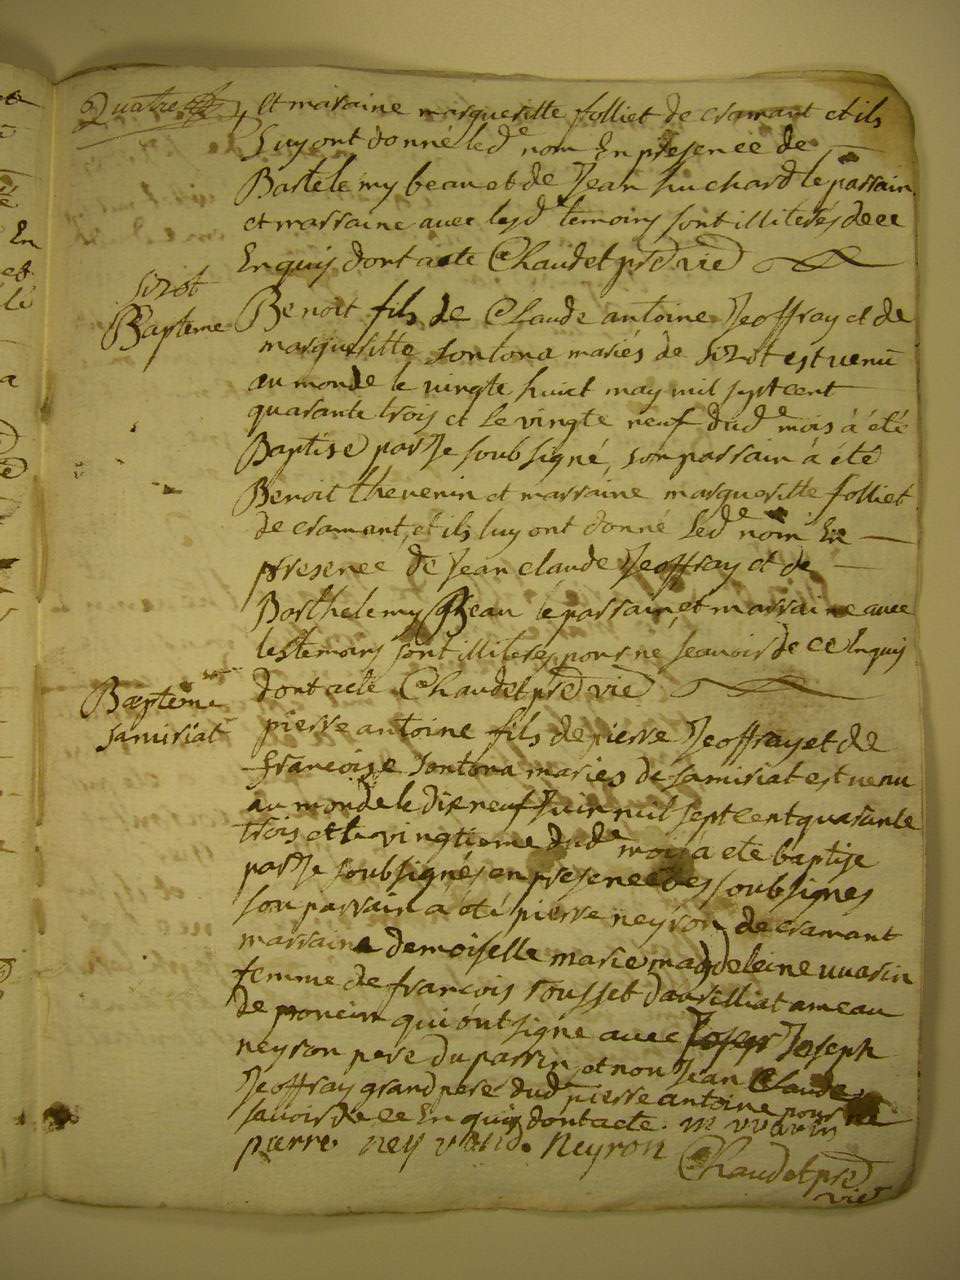 Quatre
et maraine margueritte folliet de cramant et ils
Luy ont donné led^e nom En presence de
Bartelemy beau et de Jean huchard le parrain
et marraine avec lesd temoins sont illiterés de ce
Enquis dont acte Chaudet pre vie
Sizot
Bapteme
Benoit fils de Claude antoine Jeoffray et de
margueritte sontona mariés de Sizot est venu
au monde le vingte huict may mil sept cent
quarante trois et le vingte neuf dud^e mois à été
Baptise par Je soubsigné, son parrain à été
Benoit thevenin et marraine margueritte folliet
de cramant, et ils luy ont donné Led^e nom En
presence de Jean claude Jeoffray et de
Barthelemy Beau le parrain, et marraine avec
les temoins sont illiterés pour ne scavoir de ce Enquis
dont acte Chaudet pre vie
Bapteme
Samiriat
pierre antoine fils de pierre Jeoffray et de
francoise sontona mariés de samiriat est venu
au monde le dix neuf Juin mil sept cent quarante
trois et le vingtieme dud^e mois a ete baptise
par Je soubsignés en presence des soubsignes
son parrain a eté pierre neyron de cramant
marraine demoiselle marie magdeleine vuarin
femme de francois rousset daurilliat ameau
de poncin qui ont signe avec Joseph
neyron pere du parrin et non Jean Claude
Jeoffray grand pere dud^e pierre antoine pour ne
savoir de ce Enquis dont acte. m vvarin
pierre neyron Neyron Chaudet pre
vie